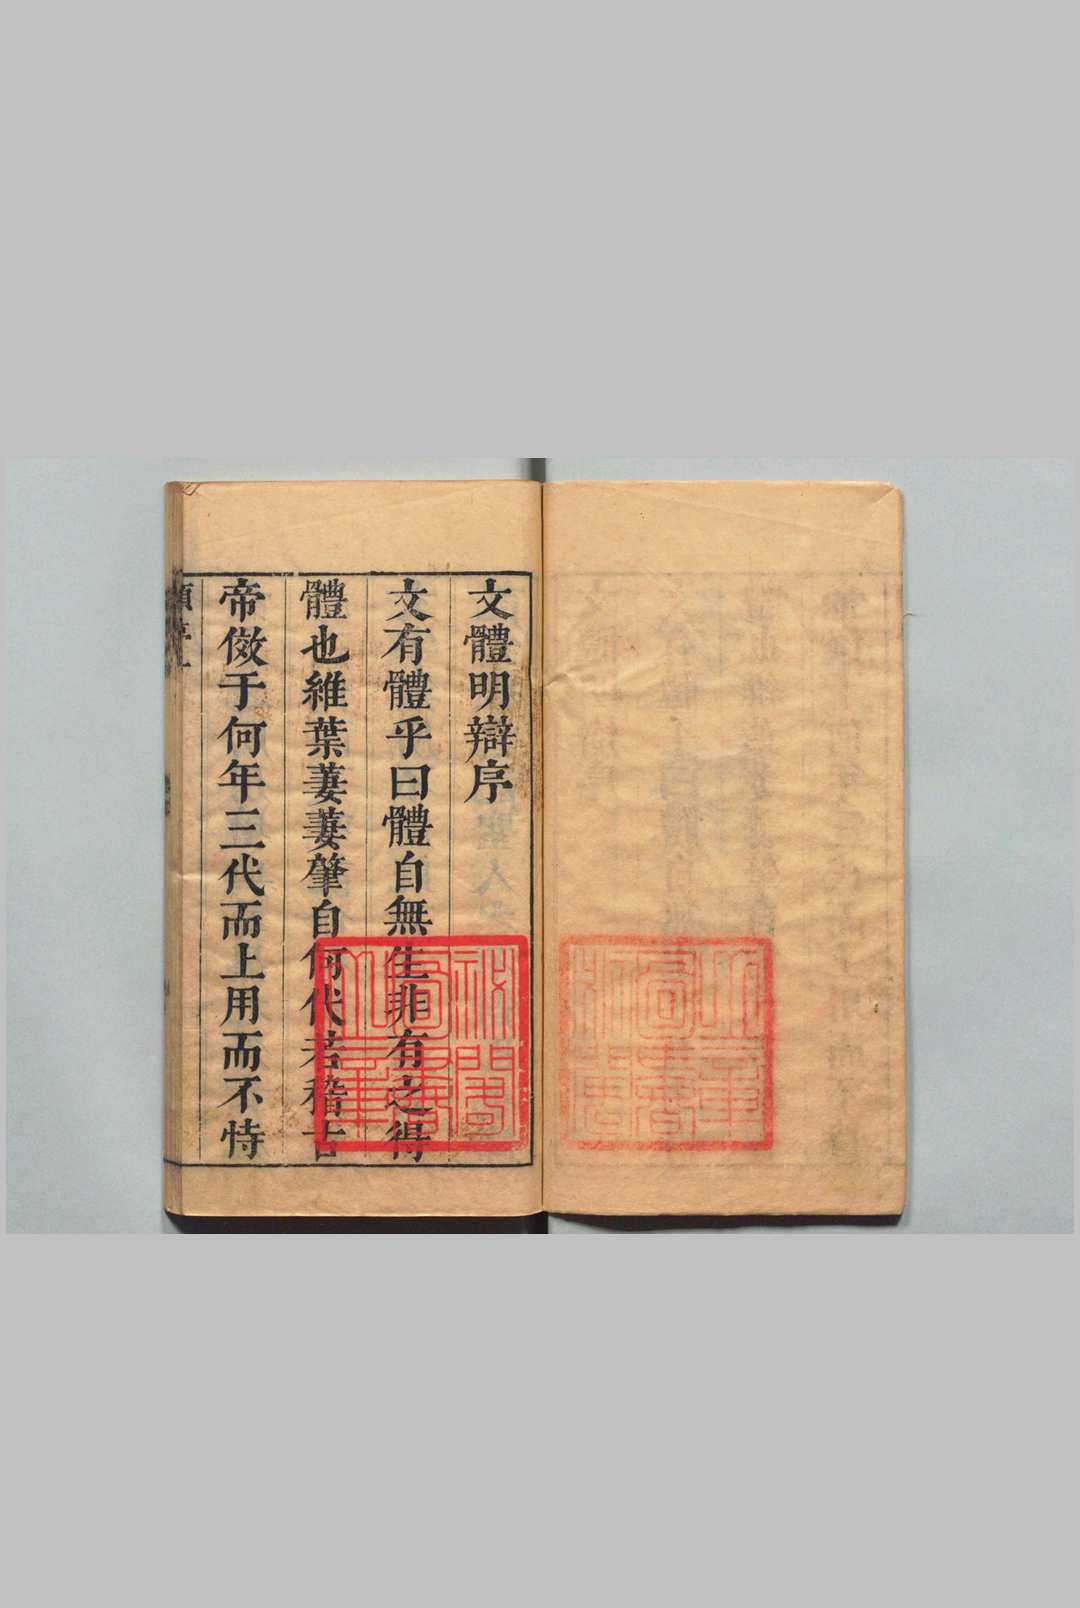 文體明辯序
文有體乎曰體自無生非有之得
體也維葉萋萋肇自何代若稽古
帝倣于何年三代而上用而不恃